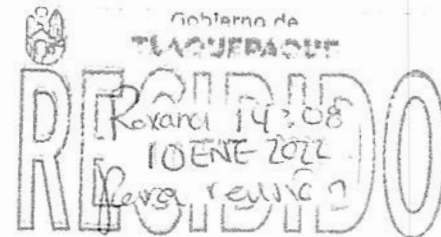 Gobierno de
TLAQUEPAQUE
RECIBIDO
Roxana 14:08
10 ENE 2022
reunión